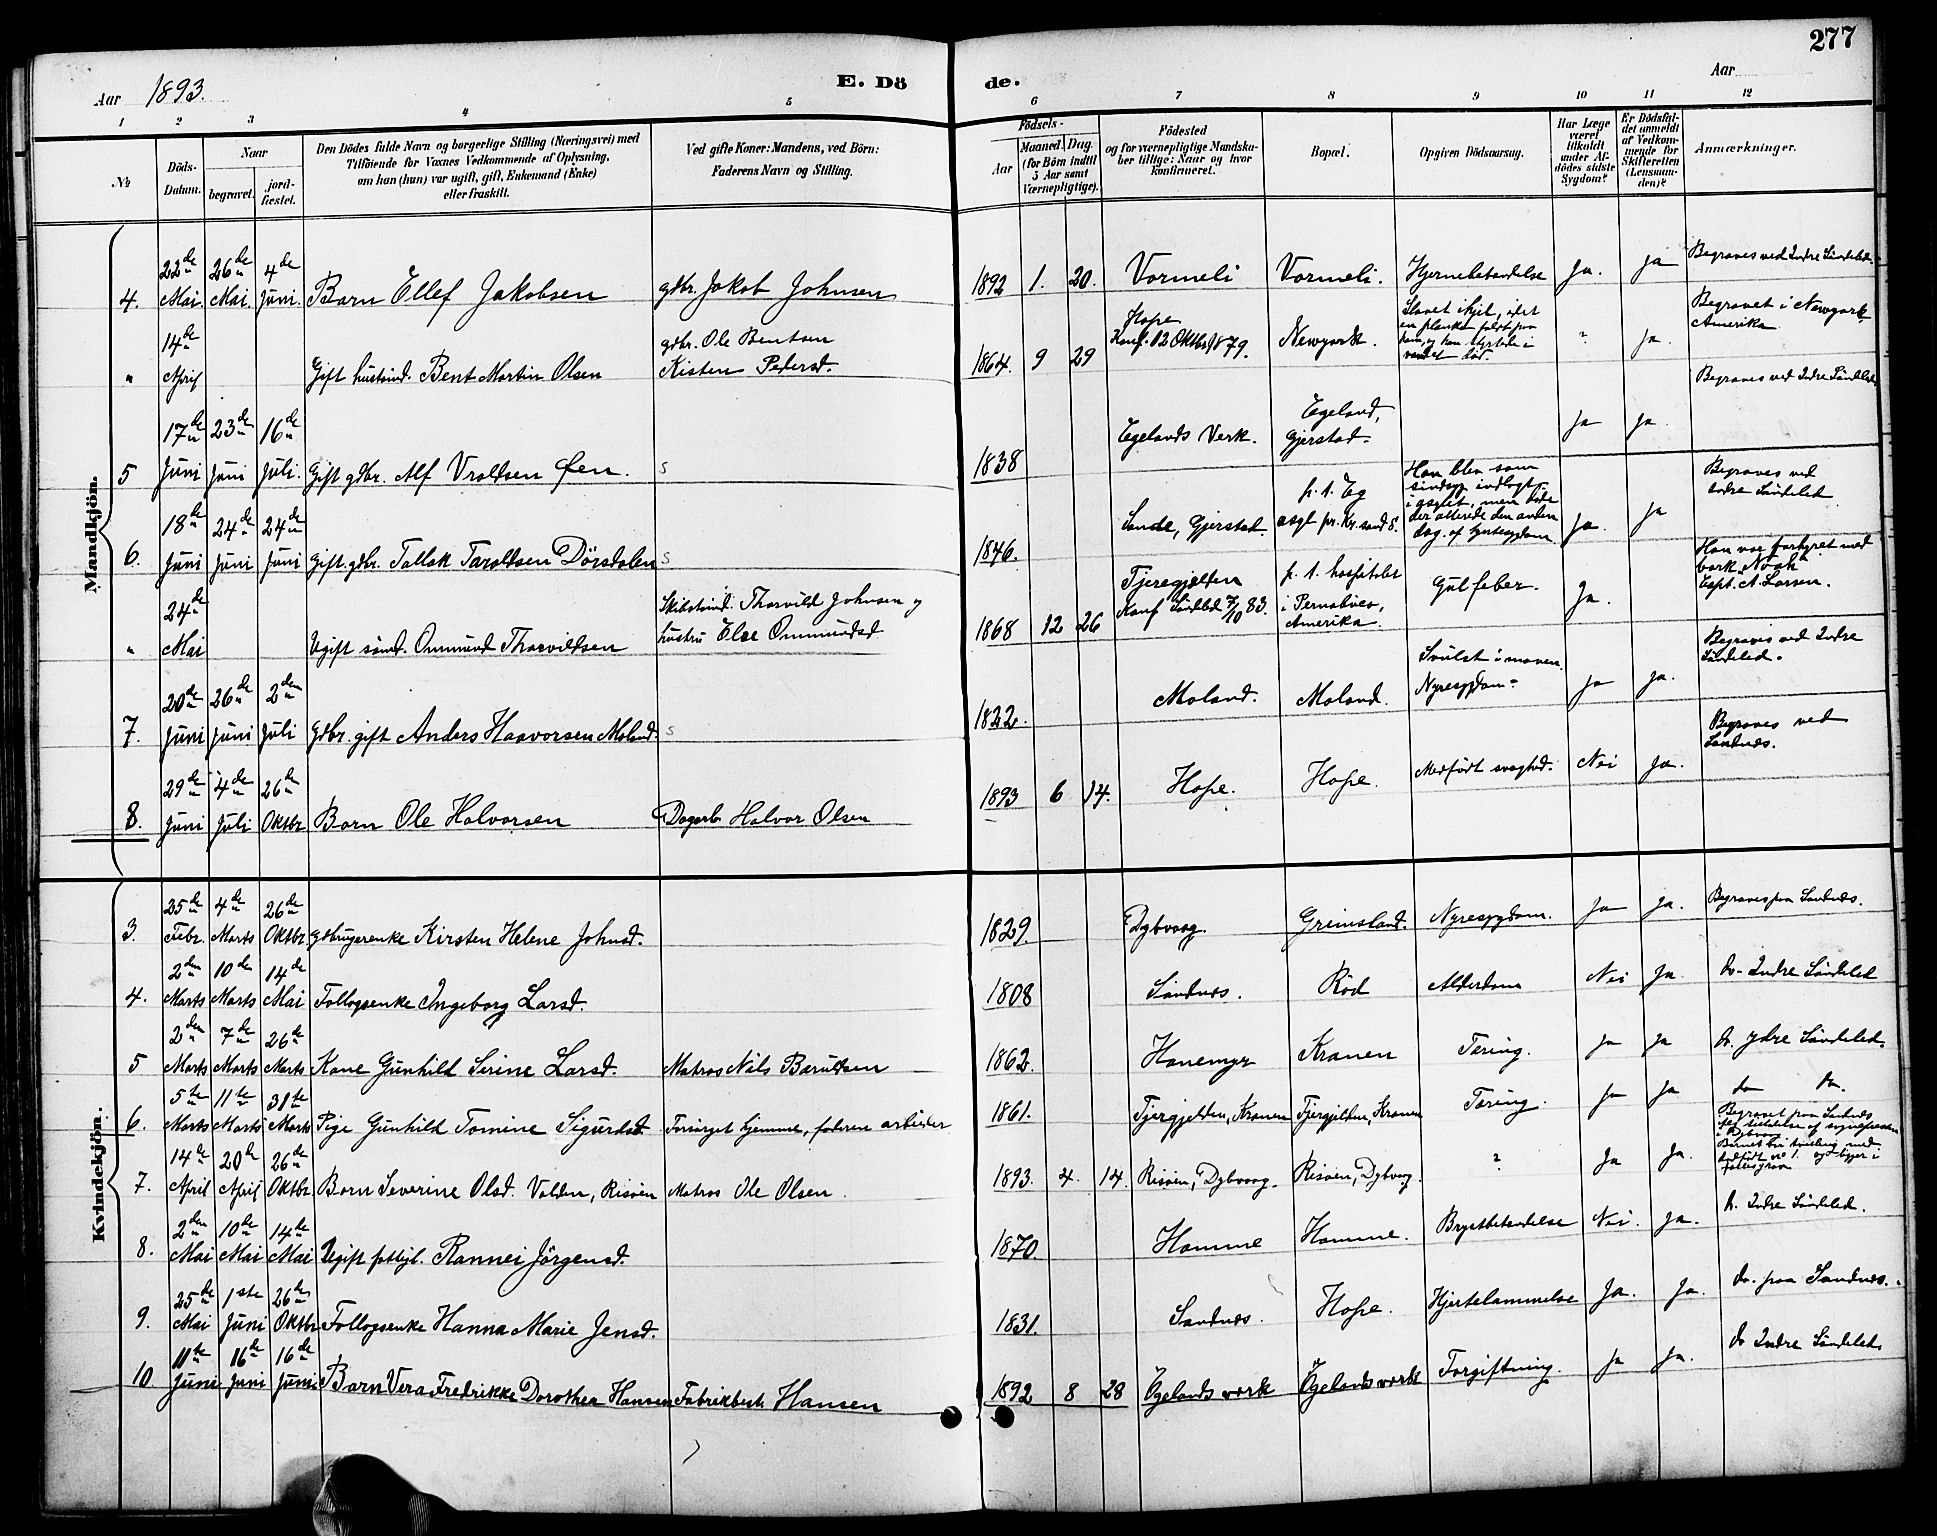 277
Aar 1893.
E. Dö
de.
Aar
1 2 3 4 5 6 7 8 9 10 11 12
№
Döds-
Datum.
Naar
begravet.
jord-
fæstet.
Den Dödes fulde Navn og borgerlige Stilling (Næringsvei) med
Tilföiende for Voxnes Vedkommende af Oplysning,
om han (hun) var ugift, gift, Enkemand (Enke)
eller fraskilt.
Ved gifte Koner: Mandens, ved Börn:
Faderens Navn og Stilling.
Födsels-
Aar
Maaned. Dag.
(for Börn indtil
5 Aar samt
Værnepligtige).
Födested
og for værnepligtige Mandska-
ber tillige: Naar og hvor
konfirmeret.
Bopæl.
Opgiven Dödsaarsag.
Har Læge
været
tilkaldt
under Af-
dödes sidste
Sygdom?
Er Dödsfal-
det anmeldt
af Vedkom-
mende for
Skifteretten
(Lensman-
den)?
Anmærkninger.
Mandkjön.
4. 22de Mai. 26de Mai. 4de Juni. Barn Ellef Jakobsen gdbr. Jakob Johnsen 1892 1. 20. Vormeli Vormeli. Hjernebetændelse Ja. Ja Begraves ved Indre Söndeled.
" 14de April Gift hustind. Bent Martin Olsen gdbr. Ole Bentsen
Kisten Pedersd. 1864. 9 29 Hope
Konf. 12 Oktbr. 1879. Newyork. Slaaet ihjel, idet
en planke faldt paa
ham, og han styrtede i
vandet död. " Ja. Begravet i Newyork,
Amerika
5 17de Juni 23de Juni 16de Juli. Gift gdbr. Alf Vroldsen Øen. s 1838 Egelands Verk. Egeland,
Gjerstad. Ja Ja. Begraves ved Indre Söndeled
6. 18de Juni 24de Juni 24de Juni Gift gdbr. Tallak Taraldsen Dörsdalen s 1846. Sande, Gjerstad. p. t. Eg
asyl pr. Kr. sand S. Han blev som
sindssyg indlagt
i asylet, men döde
der allerede den anden
dag. af hjertesygdom Ja. Ja Begraves ved
Indre Söndeled
" 24de Mai Ugift sömd. Ommund Thorvildsen Skibstömd. Thorvild Johnsen og
hustru Else Ommundsd 1868 12 26 Tjeregjelten
Konf Söndeled 7/10 83. p. t. hospitalet
i Pernabuco,
Amerika Gulfeber. Ja. Han var forhyret med
bark "Noah"
Capt. A. Larsen.
7. 20de Juni 26de Juni 2den Juli Gdbr. gift Anders Haavorsen Moland. s 1822. Moland. Moland. Svulst i maven
Nyresygdom Ja Ja. Begraves ved Indre
Söndeled.
8. 29de Juni 4de Juli 26de Oktbr Barn Ole Halvorsen Dagarb. Halvor Olsen 1893 6 14. Hope. Hope. Medfödt svaghed. Nei Ja. Begraves ved
Sandnæs.
Kvindekjön.
3. 25de Febr. 4de Marts 26de Oktbr Gdbrugerenke Kirsten Helene Johnsd. 1829. Dybvaag. Greimsland. Nyresygdom. Ja Ja. Begraves paa Sandnæs.
4. 2den Marts 10de Marts 14de Mai Follogsenke Ingeborg Larsd. 1808 Sandnæs. Röd Alderdom Nei Ja. do. Indre Söndeled
5 2den Marts 7de Marts 26de Marts Kone Gunhild Serine Larsd. Matros Nils Baruldsen 1862. Hanemyr Kranen Tæring. Ja Ja do. Ydre Söndeled.
6. 5te Marts 11te Marts 31te Marts Pige Gunhild Tomine Sigurdsd. Forsörget hjemme, faderen arbeider 1861. Tjergjelden, Kranen Tjergjelden, Kranen Tæring. Ja Ja do do.
7. 14de April 20de April 26de Oktbr Barn Severine Olsd. Valden, Risöen Matros Ole Olsen. 1893. 4. 14. Risöen, Dybvaag. Risöen, Dybvaag. ? Ja Ja. Begravet paa Sandnæs
efter tilladelse af sognepresten
i Dybvaag.
Barnet er tvilling med
dödfödt no 1. og ligger i
fællesgrav
8. 2den Mai 10de Mai 14de Mai Ugift fattigl. Rannei Jörgensd. 1870. Hamme Hamme. Brystbetændelse Nei. Ja. do. Indre Söndeled.
9. 25de Mai 1ste Juni 26de Oktbr Follogsenke Hanna Marie Jensd. 1831. Sandnæs. Hope. Hjertelammelse Ja. Ja. do. paa Sandnæs.
10 11te Juni 16de Juni 16de Juni. Barn Vera Fredrikke Dorothea Hansen Fabrikbest. Hansen 1892 8 28 Egelands verk Egelands verk Forgiftning. Ja Ja. do Indre Söndeled.